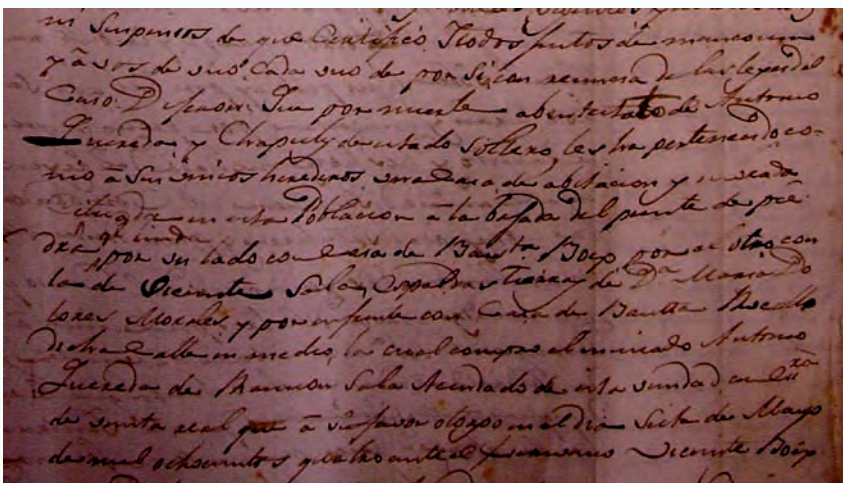 ni Suspensos de que Certifico Todos juntos de mancomun
y â vos de uno, Cada uno de por Si, con renuncia de las leyes del
Caso: Dijeron: Que por muerte abintestato de Antonio
Quereda y Chapuly de estado Soltero, les ha pertenecido co-
mo â sus unicos herederos una Casa de abitacion y morada
Situada en esta Poblacion â la bajada del puente de pie-
que linda
dra, por un lado con Casa de Bauta. Boix por el otro con
la de Vicente Sala, Espaldas tierras de Da. Maria Do
lores Morales, y por enfrente con Casa de Bautta
dicha Calle en medio, la cual compro el Antonio
Quereda de Ramon Sala de esta vindad en Essra
de venta real que â su favor otorgo en el dia Siete de Mayo
de mil ochocientos quatro ante el Vicente Boix